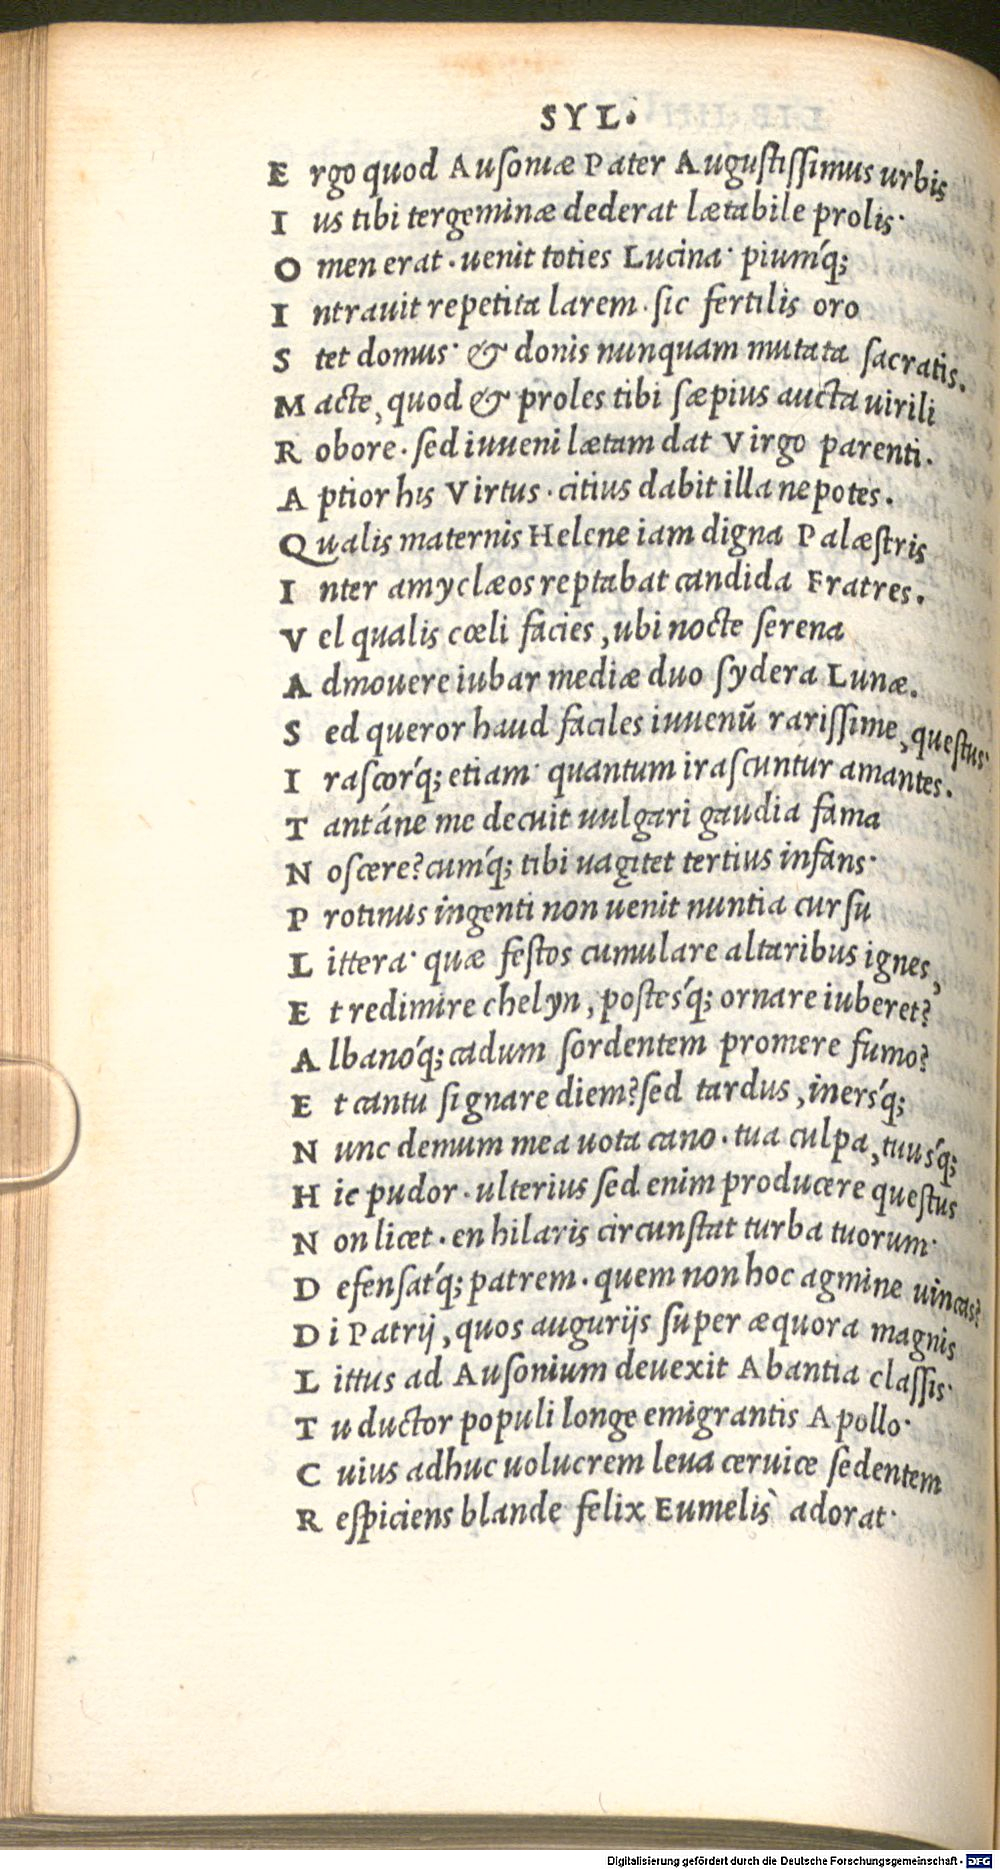 SYL.
E rgo quod Ausoniæ Pater Augustissimus urbis
I us tibi tergeminæ dederat lætabile prolis·
O men erat. uenit toties Lucina· piumq́;
I ntrauit repetita larem. sic fertilis oro
S tet domus· & donis nunquam mutata sacratis.
M acte, quod & proles tibi sæpius aucta uirili
R obore. sed iuueni lætam dat Virgo parenti.
A ptior his Virtus. citius dabit illa nepotes.
Q ualis maternis Helene iam digna Palæstris
I nter amyclæos reptabat candida Fratres.
V el qualis cœli facies, ubi nocte serena
A dmouere iubar mediæ duo sydera Lunæ.
S ed queror haud faciles iuuenū rarissime, questus·
I rascorq́; etiam· quantum irascuntur amantes.
T antáne me decuit uulgari gaudia fama
N oscere? cumq́; tibi uagitet tertius infans·
P rotinus ingenti non uenit nuntia cursu
L ittera· quæ festos cumulare altaribus ignes,
E t redimire chelyn, postesq́; ornare iuberet?
A lbanoq́; cadum sordentem promere fumo?
E t cantu signare diem? sed tardus, inersq́;
N unc demum mea uota cano. tua culpa, tuusq́;
H ic pudor. ulterius sed enim producere questus
N on licet. en hilaris circunstat turba tuorum·
D efensatq́; patrem. quem non hoc agmine uincas?
D i Patrij, quos augurijs super æquora magnis
L ittus ad Ausonium deuexit Abantia classis·
T u ductor populi longe emigrantis Apollo·
C uius adhuc uolucrem leua ceruice sedentem
R espiciens blande felix Eumelis̀ adorat·
Digitalisierung gefördert durch die Deutsche Forschungsgemeinschaft - DFG